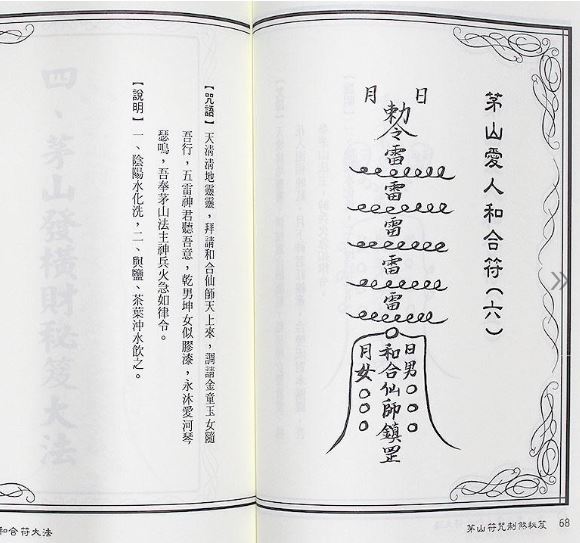 茅山愛人和合符(六)
日
月
勅令雷
雷
雷
雷
雷
日男○○○
和合仙師鎮罡
月女○○○
茅山符咒制煞秘笈 68
【咒語】天淸淸地靈靈,拜請和合仙師天上來,調請金童玉女隨
吾行,五雷神君聽吾意,乾男坤女似膠漆,永沐愛河琴
瑟鳴,吾奉茅山法主神兵火急如律令。
【說明】
一、陰陽水化洗,二、與鹽、茶葉沖水飲之。
和合符大法